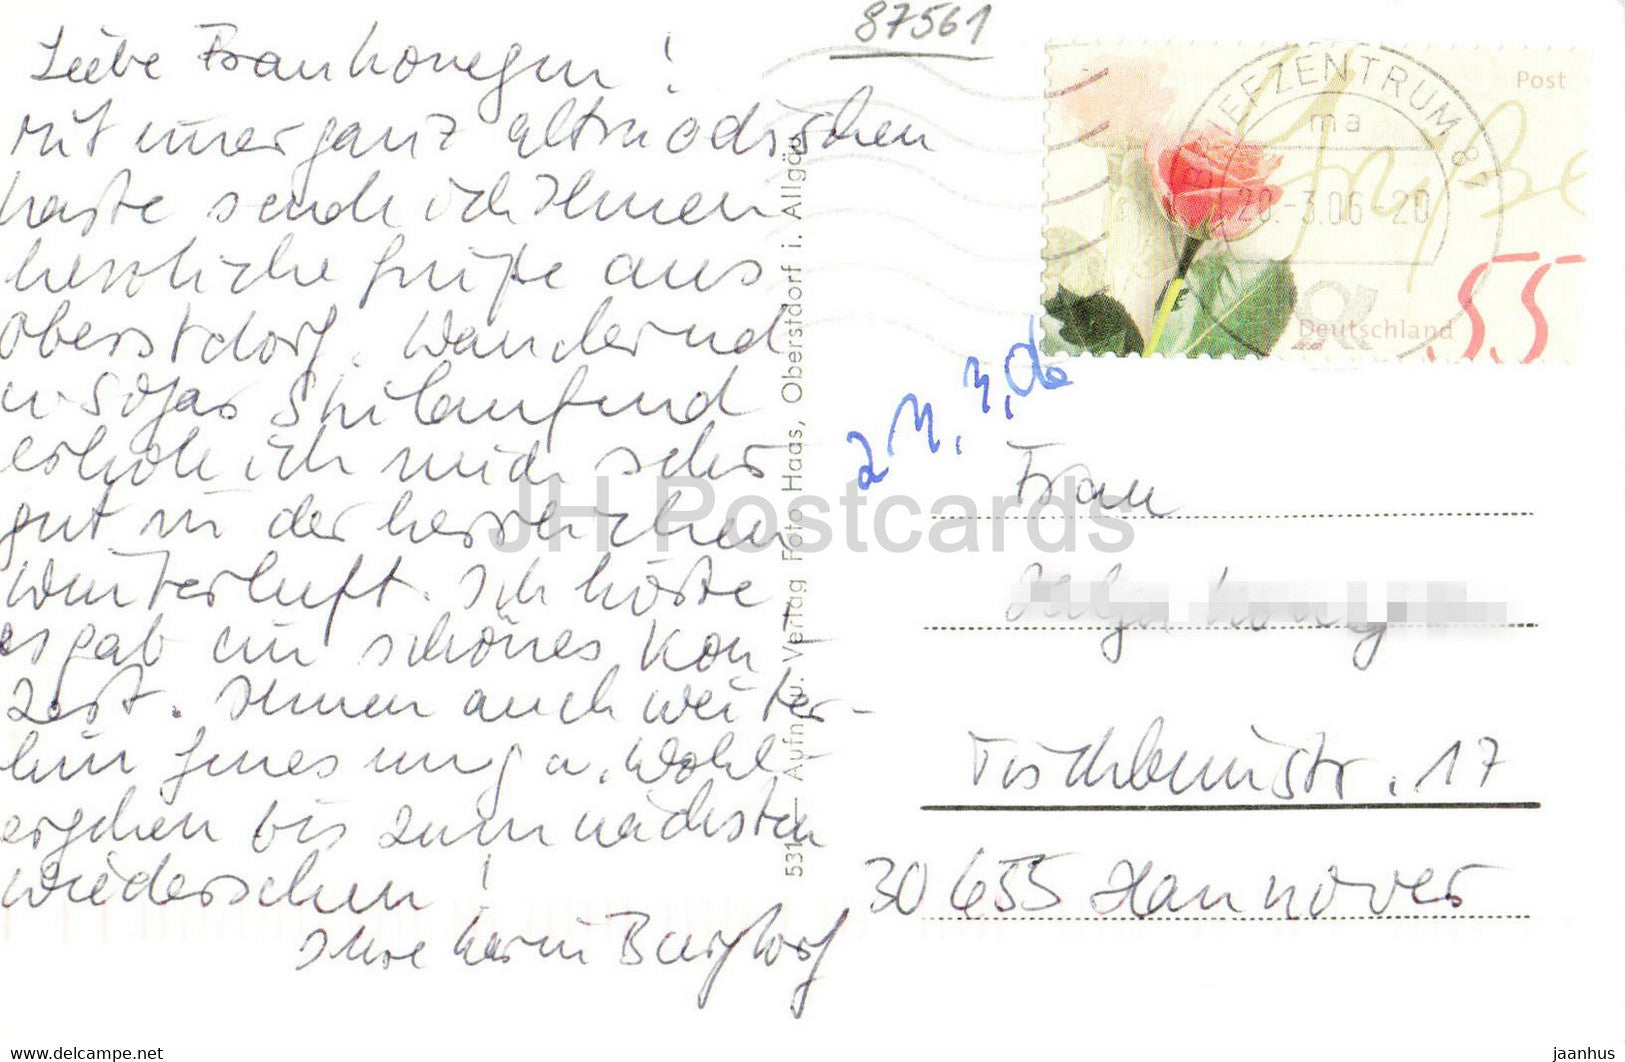 87561
Liebe Frau Konegen!
Mit einer ganz altmodischen
Karte sende ich Ihnen
herzliche Grüße aus
Oberstdorf. Wandernd
u. sogar Skilaufend
erhole ich mich sehr
gut in der herrlichen
Winterluft. Ich hörte,
es gab ein schönes Kon
zert. Ihnen auch weiter-
hin Genesung u. Wohl-
ergehen bis zum nächsten
Wiedersehen!
Ihre Karin Burgdorf
531 - Aufn. u. Verlag Foto Haas, Oberstdorf i. Allgäu
BRIEFZENTRUM 87
ma
20.-3.06-20
Post
Grüße
55
Deutschland
2003
21.3.06
Frau
Helga
Tischbeinstr. 17
30655 Hannover
JH Postcards
https://www.delcampe.net
jaanhus